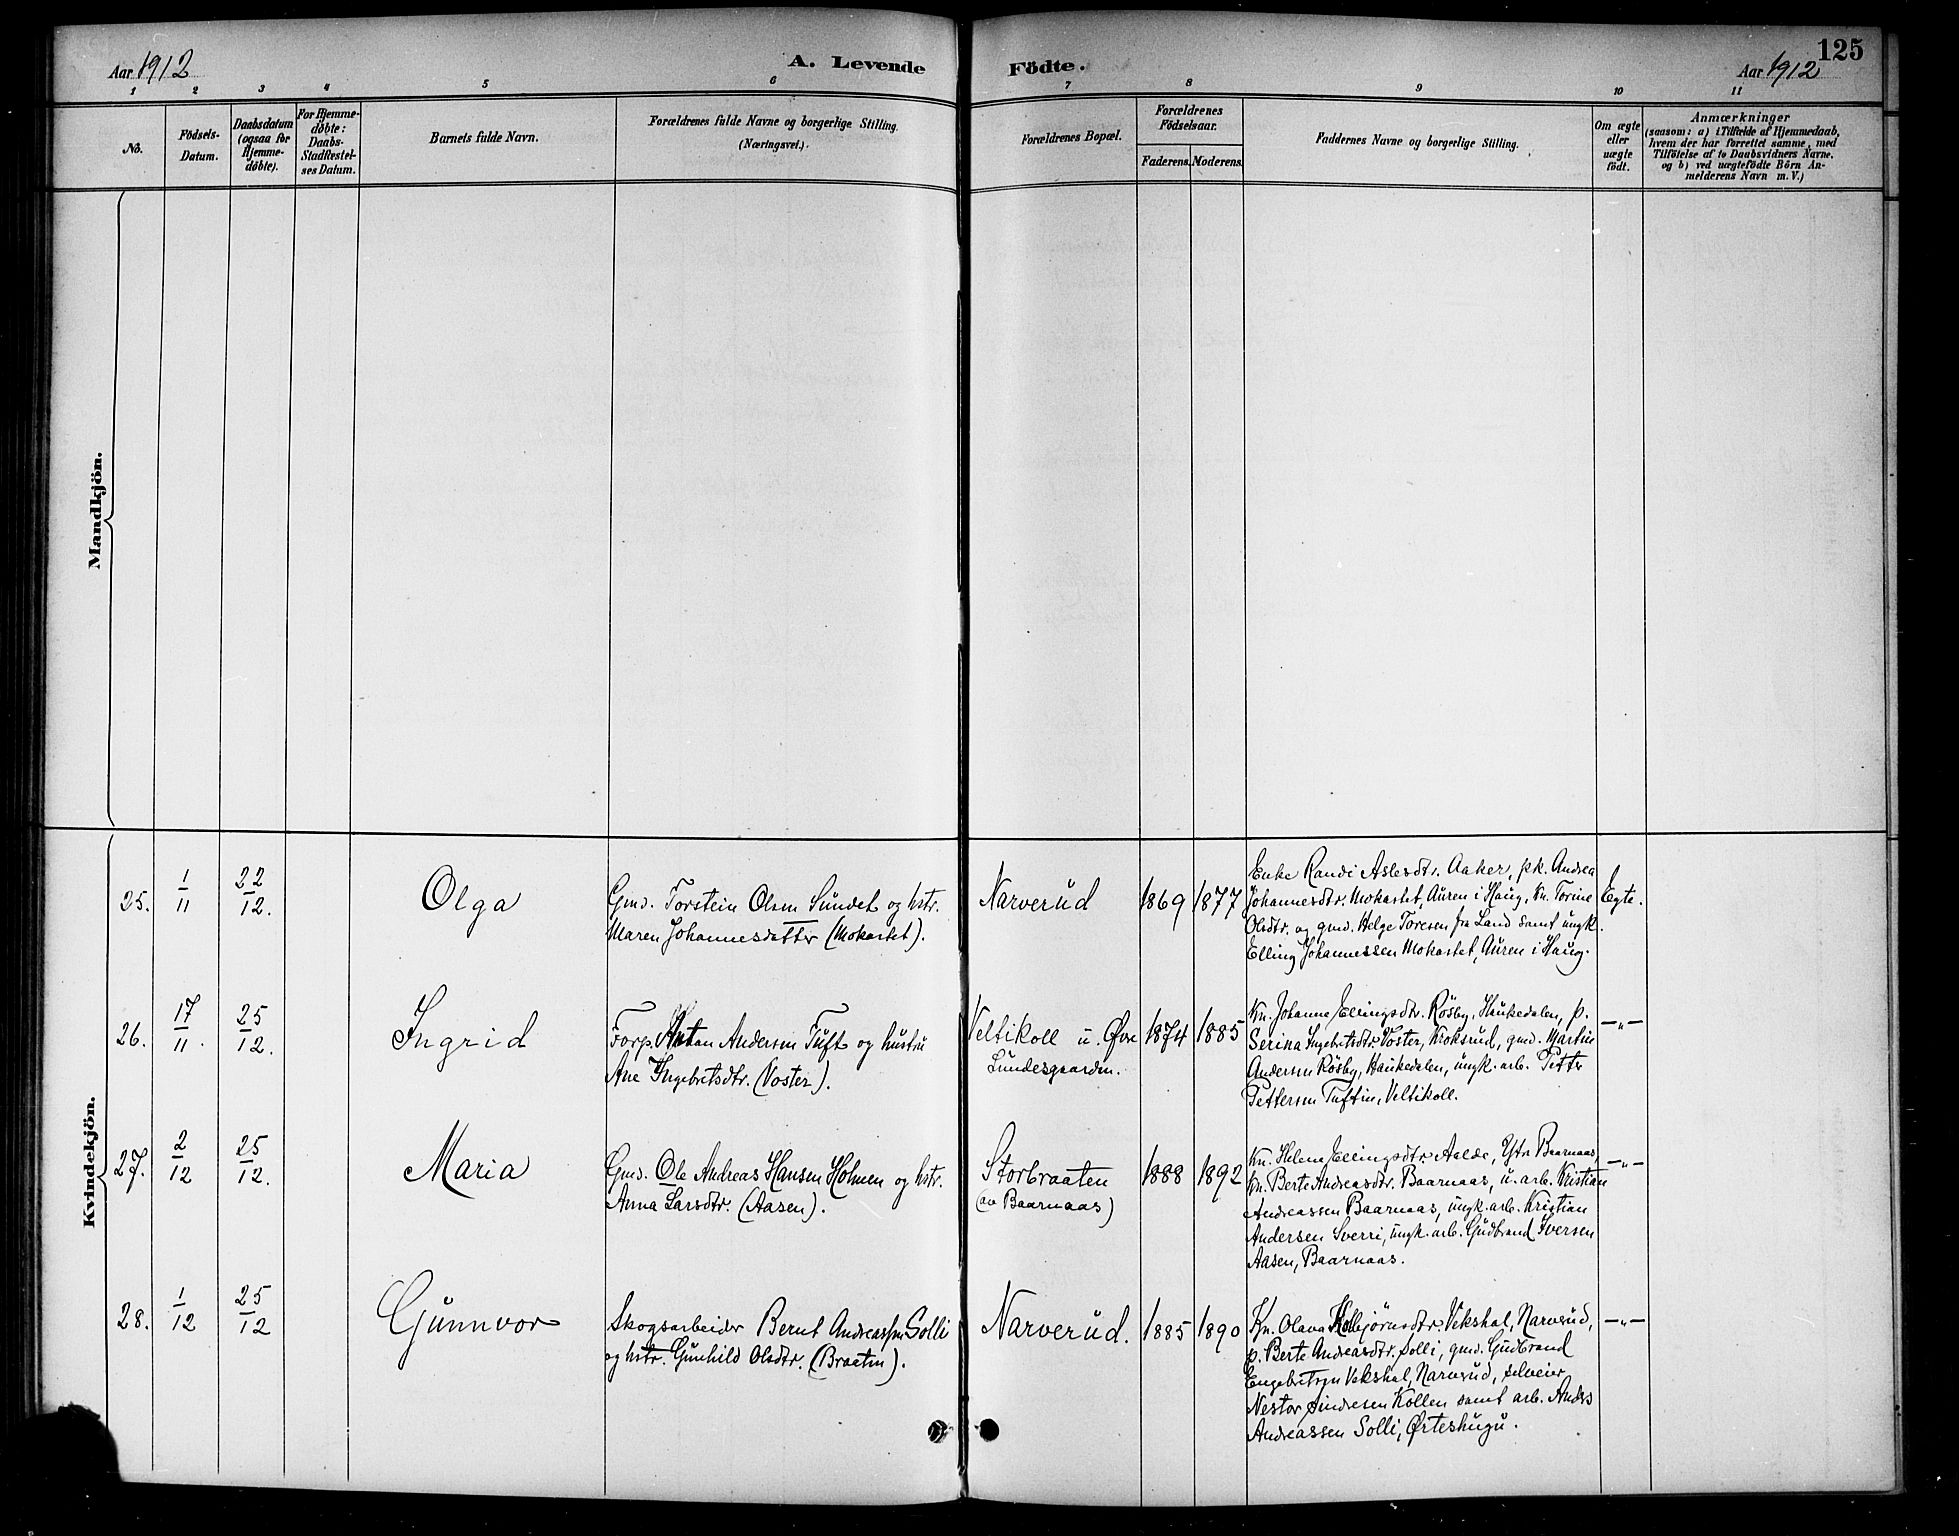 Aar 1912
A. Levende Födte.
125
Aar 1912
1 2 3 4 5 6 7 8 9 10 11
No.
Födsels-Datum.
Daabsdatum (ogsaa for Hjemme-döbte).
For Hjemme-döbte: Daabs-Stadfestel-ses Datum.
Barnets fulde Navn.
Forældrenes fulde Navne og borgerlige Stilling.
(Næringsvei.)
Forældrenes Bopæl.
Forældrenes Födselsaar.
Faderens. Moderens.
Faddernes Navne og borgerlige Stilling.
Om ægte eller uægte födt.
Anmærkninger
(saasom: a) i Tilfælde af Hjemmedaab,
hvem der har forrettet samme, med
Tilföielse af to Daabsvidners Navne,
og b) ved uægtefödte Börn An-
melderens Navn m. V.)
Mandkjön.
Kvindekjön.
25. 1/11 22/12. Olga
Gmd. Torstein Olsen Sundet og hstr.
Maren Johannesdatter (Mokastet).
Narverud 1869 1877
Enke Randi Aslesdtr. Aaker, pk. Andrea
Johannesdtr. Mokastet, Auren i Haug, kn. Torine
Olsdtr. og gmd. Helge Toresen fra Land samt ungk.
Elling Johannessen Mokastet, Auren i Haug.
Egte.
26. 17/11. 25/12. Ingrid
Forp. Anton Andersen Tuft og hustru
Ane Ingebretsdtr. (Voster).
Veltikoll u. Øvre
Lundesgaarden.
1874 1885
Kn. Johanne Ellingsdtr. Rösby, Haukedalen, p.
Serina Ingebretsdtr. Voster, Kroksrud, gmd. Martin
Andersen Rösby, Haukedalen, ungk. arb. Petter
Pettersen Tuftin, Veltikoll.
—„—
27. 2/12 25/12. Maria
Gmd. Ole Andreas Hansen Holmen og hstr.
Anna Larsdtr. (Aasen).
Storbraaten
(av Baarnaas)
1888 1892
Kn. Helene Ellingsdtr. Aalde, Ytre Baarnaas,
kn. Berte Andreasdtr. Baarnaas, u. arb. Kristian
Andreassen Baarnaas, ungk. arb. Kristian
Andersen Sverri, ungk. arb. Gudbrand Iversen
Aasen, Baarnaas.
—„—
28. 1/12 25/12 Gunnvor
Skogsarbeider Bernt Andreassen Solli
og hstr. Gunhild Olsdtr. (Braaten).
Narverud. 1885 1890
Kn. Olava Kolbjörnsdtr. Vekshal, Narverud,
p. Berte Andreasdtr. Solli, gmd. Gudbrand
Engebretsen Vekshal, Narverud, selveier
Nestor Sindresen Kollen samt arb. Anders
Andreassen Solli, Ørteshugu.
—„—